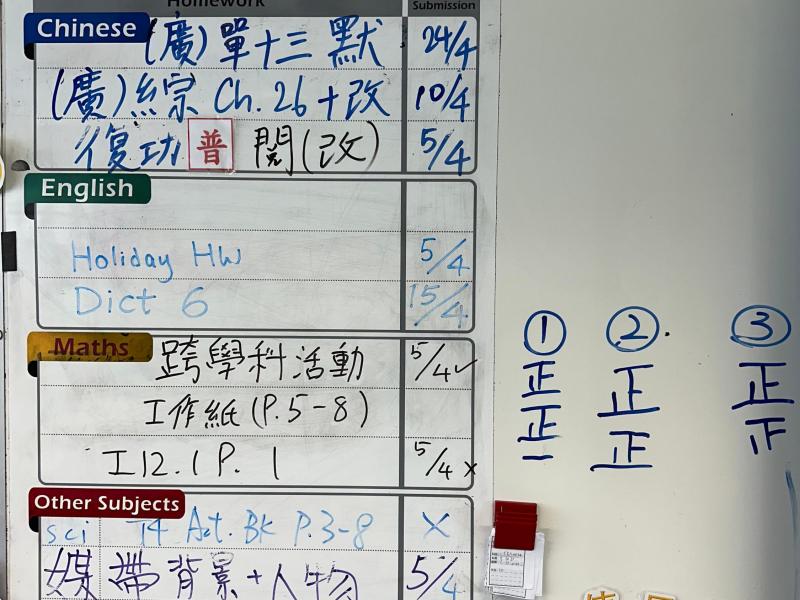 Homework Submission
Chinese (廣) 單十三 默 24/4
(廣) 綜 Ch. 26 + 改 10/4
復功 普 閱(改) 5/4
English
Holiday HW 5/4
Dict 6 15/4
Maths 跨學科活動 5/4 ✓
工作紙 (P.5-8)
工12.1 P. 1 5/4 x
Other Subjects
sci T4 Act. BK P.3-8 X
媒 帶背景+人物 5/4
① ② ③
正 正 正
正 正
一